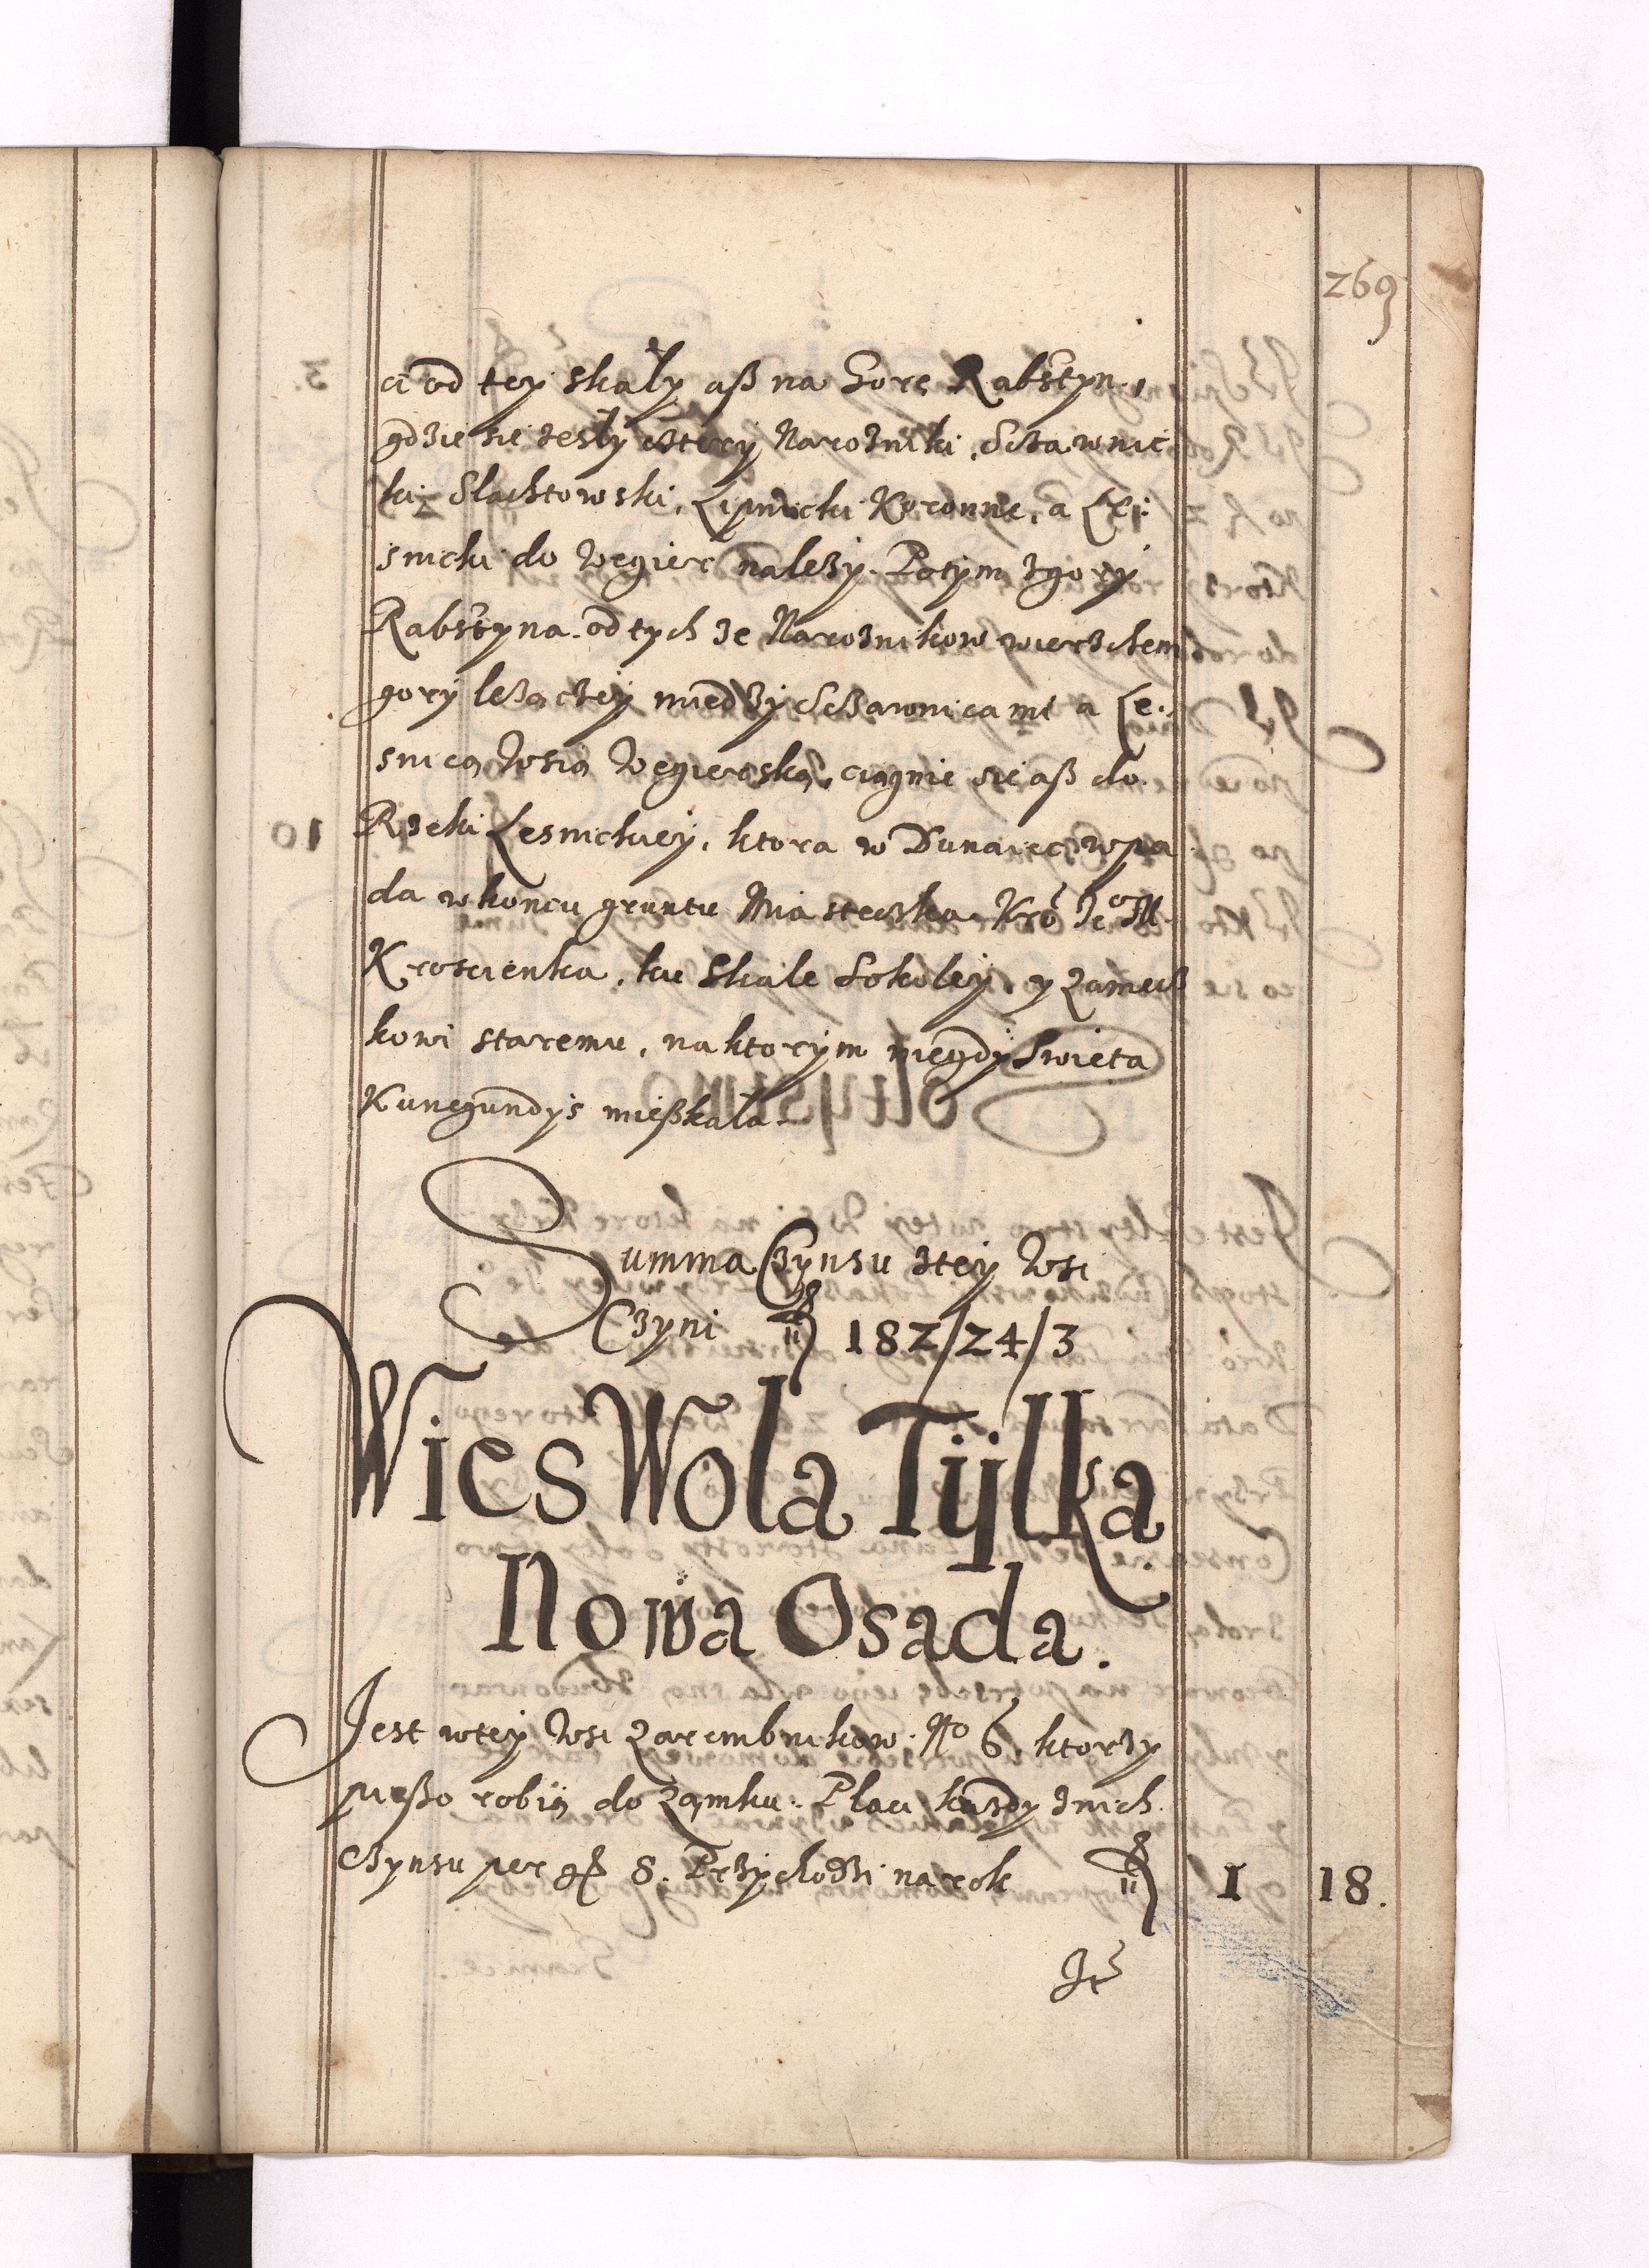 269
a od tey skały aß na Gorę Rabsztyn,
gdzie się zesły cztery Narozniki, Sczawnic
ki Slachtowski, Lipnicki Koronne, a Le:
snicki do Węgier nalezy. Potym z gory
Rabsztyna od tych ze Naroznikow wierzchem
gory leżączey miedzy Sczawnicami a Le:
snicą Wsią Węgierską, ciągnie się aß do
Rzeki Lesnickiey, ktora w Dunaiec wpa
da w koncu gruntu Miasteczka Kró Jeº M
Kroscienka, ku Skale Sokoley, y Zamecz
kowi staremu, na ktorym niegdy Swięta
Kunegundys mießkała.
Summa Czynsu z tey Wsi
Czyni 182/24/3
Wies Wola Tÿlka
Nowa Osada.
Jest w tey Wsi Zarembnikow Nº 6, ktorzy
pießo robią do Zamku. Płaci kazdy z nich
czynsu per gß 8. Przychodzi na rok 1 18.